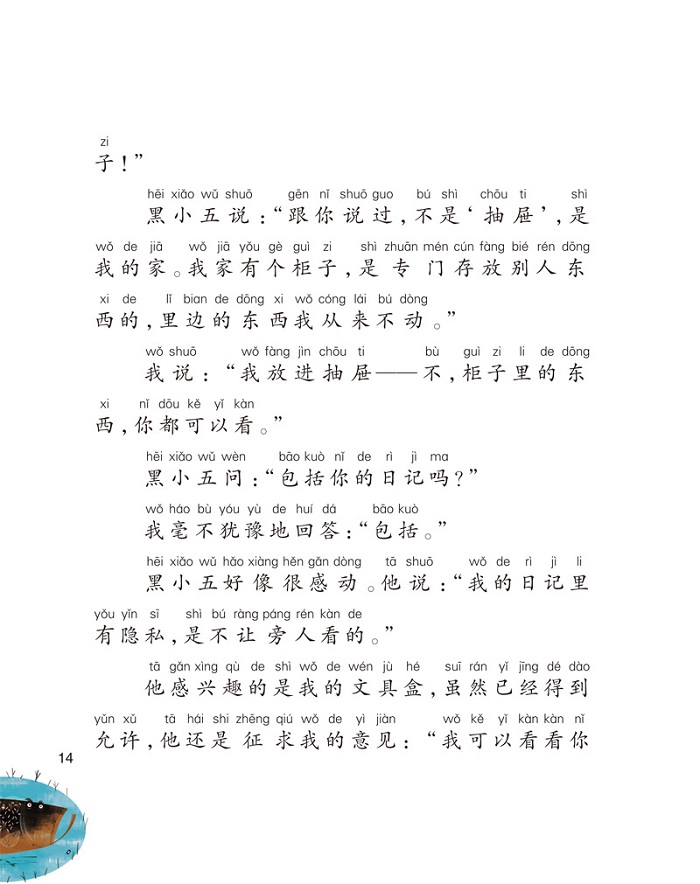 zi
子！”
hēi xiǎo wǔ shuō gēn nǐ shuō guo bú shì chōu ti shì
黑小五说：“跟你说过，不是‘抽屉’，是
wǒ de jiā wǒ jiā yǒu gè guì zi shì zhuān mén cún fàng bié rén dōng
我的家。我家有个柜子，是专门存放别人东
xi de lǐ bian de dōng xi wǒ cóng lái bú dòng
西的，里边的东西我从来不动。”
wǒ shuō wǒ fàng jìn chōu ti bù guì zi li de dōng
我说：“我放进抽屉——不，柜子里的东
xi nǐ dōu kě yǐ kàn
西，你都可以看。”
hēi xiǎo wǔ wèn bāo kuò nǐ de rì jì ma
黑小五问：“包括你的日记吗？”
wǒ háo bù yóu yù de huí dá bāo kuò
我毫不犹豫地回答：“包括。”
hēi xiǎo wǔ hǎo xiàng hěn gǎn dòng tā shuō wǒ de rì jì li
黑小五好像很感动。他说：“我的日记里
yǒu yǐn sī shì bú ràng páng rén kàn de
有隐私，是不让旁人看的。”
tā gǎn xìng qù de shì wǒ de wén jù hé suī rán yǐ jīng dé dào
他感兴趣的是我的文具盒，虽然已经得到
yǔn xǔ tā hái shi zhēng qiú wǒ de yì jiàn wǒ kě yǐ kàn kàn nǐ
允许，他还是征求我的意见：“我可以看看你
14